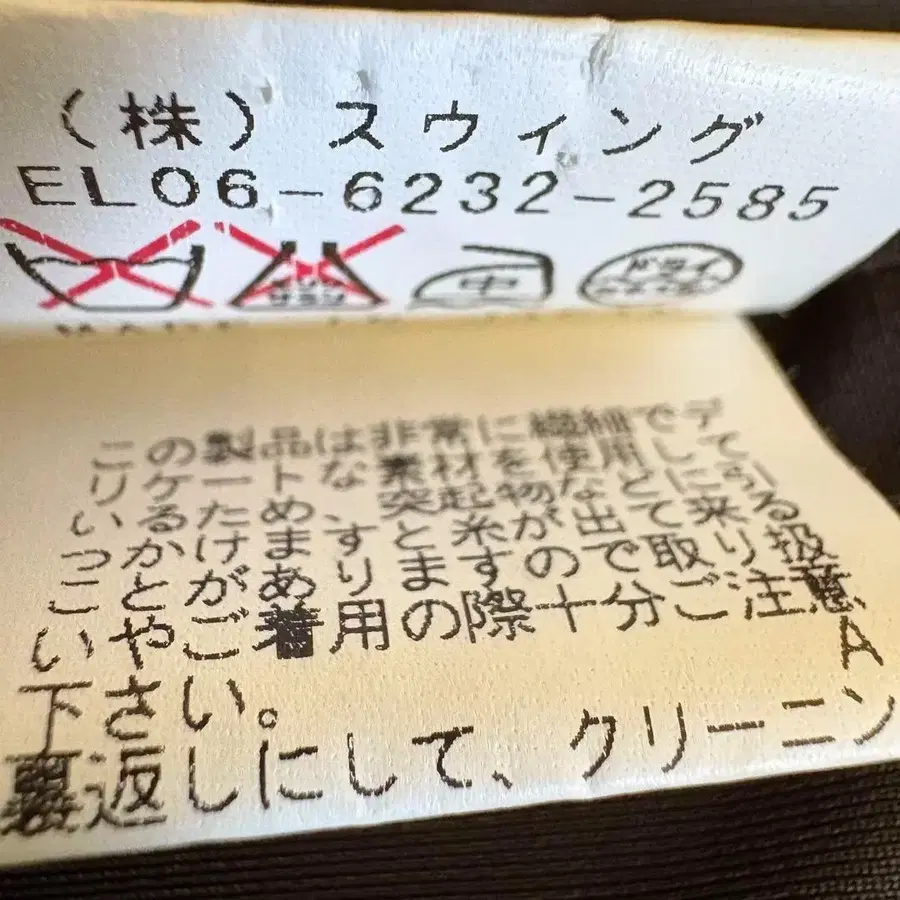 （株）スウィング
EL06-6232-2585
エンソ
サラシ
中
ドライ
この製品は非常に繊細でデ
リケートな素材を使用して
いるため突起物などに引
っかけますと糸が出て来る
ことがありますので取り扱
いやご着用の際十分ご注意
A
下さい。
裏返しにして、クリーニン